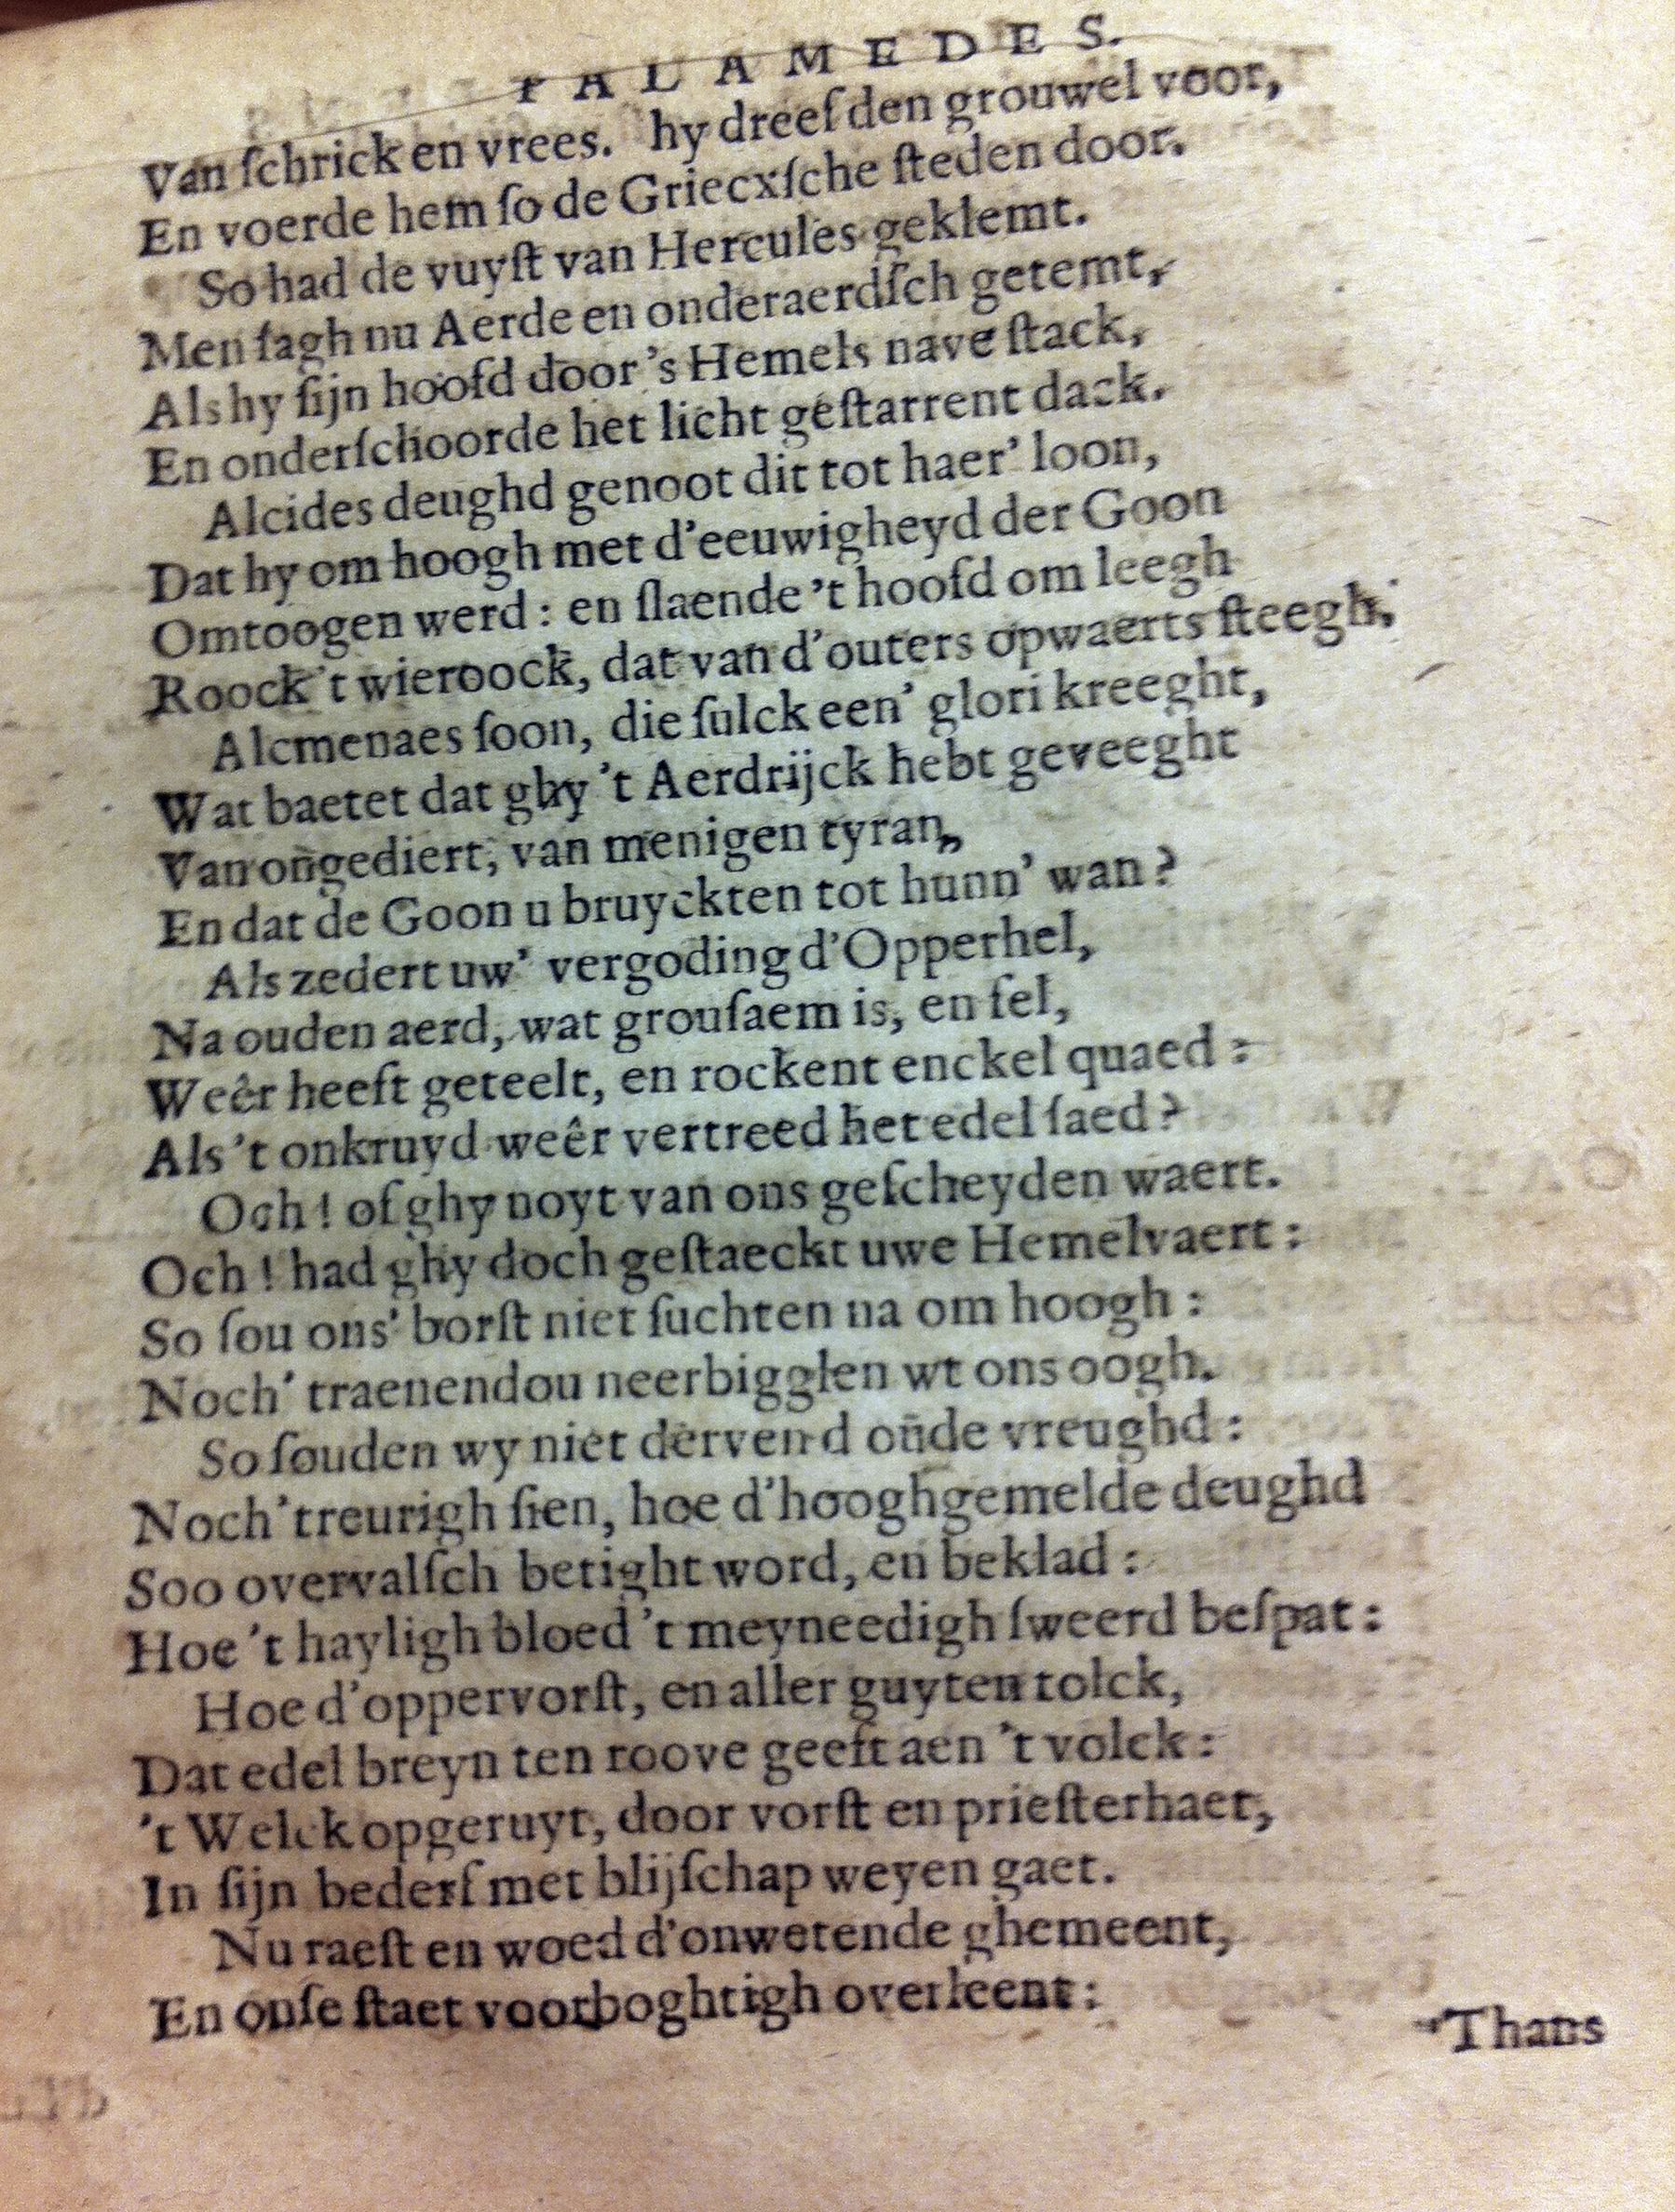 PALAMEDES.
Van ſchrick en vrees. hy dreef den grouwel voor,
En voerde hem ſo de Griecxſche ſteden door.
So had de vuyſt van Hercules geklemt.
Men ſagh nu Aerde en onderaerdſch getemt,
Als hy ſijn hoofd door 's Hemels nave ſtack,
En onderſchoorde het licht geſtarrent dack.
Alcides deughd genoot dit tot haer' loon,
Dat hy om hoogh met d'eeuwigheyd der Goon
Omtoogen werd : en ſlaende 't hoofd om leegh
Roock 't wieroock, dat van d'outers opwaerts ſteegh.
Alcmenaes ſoon, die ſulck een' glori kreeght,
Wat baetet dat ghy 't Aerdrijck hebt geveeght
Van ongediert, van menigen tyran,
En dat de Goon u bruyckten tot hunn' wan?
Als zedert uw' vergoding d'Opperhel,
Na ouden aerd, wat grouſaem is, en fel,
Weêr heeft geteelt, en rockent enckel quaed :
Als 't onkruyd weêr vertreed het edel ſaed?
Och! of ghy noyt van ons geſcheyden waert.
Och! had ghy doch geſtaeckt uwe Hemelvaert :
So ſou ons' borſt niet ſuchten na om hoogh :
Noch' traenendou neerbigglen wt ons oogh.
So ſouden wy niet dervend oude vreughd :
Noch' treurigh ſien, hoe d'hooghgemelde deughd
Soo overvalſch betight word, en beklad :
Hoe 't hayligh bloed 't meyneedigh ſweerd beſpat :
Hoe d'oppervorſt, en aller guyten tolck,
Dat edel breyn ten roove geeft aen 't volck :
't Welck opgeruyt, door vorſt en prieſterhaet,
In ſijn bederf met blijſchap weyen gaet.
Nu raeſt en woed d'onwetende ghemeent,
En onſe ſtaet voorboghtigh overleent :
Thans